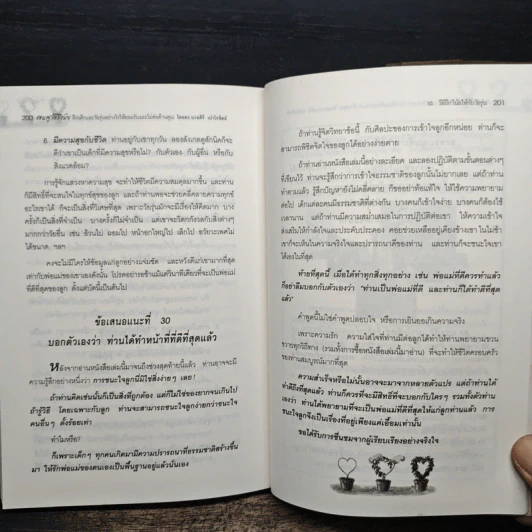 200
6. มีความสุขกับชีวิต ท่านอยู่กับเขาทุกวัน ลองสังเกตดูสักนิดก็จะ
ดีว่าเขาเป็นเด็กที่มีความสุขหรือไม่? กับตัวเอง กับผู้อื่น หรือกับ
สิ่งแวดล้อม?
การรู้จักแสวงหาความสุข จะทำให้ชีวิตมีความสมดุลมากขึ้น และท่าน
ก็มีสิทธิ์ที่จะสนใจในทุกข์สุขของลูก และถ้าท่านพอจะช่วยคลี่คลายความทุกข์
อะไรเขาได้ ก็จะเป็นสิ่งที่วิเศษที่สุด เพราะวัยรุ่นมักจะมีเรื่องให้คิดมาก บาง
ครั้งก็เป็นสิ่งที่จำเป็น บางครั้งก็ไม่จำเป็น แต่เขาจะวิตกกังวลกับสิ่งต่างๆ
มากกว่าวัยอื่น เช่น อ้วนไป ผอมไป หน้าอกใหญ่ไป เล็กไป อวัยวะเพศไม่
ได้ขนาด ฯลฯ
คงจะไม่มีใครให้ข้อมูลแก่ลูกท่านอย่างแจ่มชัด และหวังดีแก่เขามากที่สุด
เท่ากับพ่อแม่ของเขาเองดังนั้น โปรดอย่ารอช้าแม้แต่วินาทีเดียวที่จะเป็นพ่อแม่
ที่ดีที่สุดของลูก ตั้งแต่บัดนี้เป็นต้นไป
ข้อเสนอแนะที่ 30
บอกตัวเองว่า ท่านได้ทำหน้าที่ที่ดีที่สุดแล้ว
หลังจากอ่านหนังสือเล่มนี้มาจนถึงช่วงสุดท้ายนี้แล้ว ท่านอาจจะมี
ความรู้สึกอย่างหนึ่งว่า การชนะใจลูกนี้มิใช่สิ่งง่ายๆ เลย!
ถ้าท่านคิดเช่นนั้นก็เป็นสิ่งที่ถูกต้อง แต่ก็ไม่ใช่ของยากจนเกินไป
ถ้ารู้วิธี โดยเฉพาะกับลูก ท่านจะสามารถชนะใจลูกง่ายกว่าชนะใจ
คนอื่นๆ ตั้งร้อยเท่า
ทำไมหรือ?
ก็เพราะเด็กๆ ทุกคนเกิดมามีความปรารถนาที่ธรรมชาติสร้างขึ้น
มา ให้รักพ่อแม่ของตนเองเป็นพื้นฐานอยู่แล้วนั่นเอง
201
ถ้าท่านรู้จิตวิทยาข้อนี้ กับศิลปะของการเข้าใจลูกอีกหน่อย ท่านก็จะ
สามารถพิชิตจิตใจของลูกได้อย่างง่ายดาย
ถ้าท่านอ่านหนังสือเล่มนี้อย่างละเอียด และลองปฏิบัติตามขั้นตอนต่างๆ
ที่เขียนไว้ ท่านจะรู้สึกว่าการเข้าใจธรรมชาติของลูกนั้นไม่ยากเลย แต่ถ้าท่าน
ทำตามแล้ว รู้สึกปัญหายังไม่คลี่คลาย ก็ขออย่าท้อแท้ใจ ให้ใช้ความพยายาม
ต่อไป เด็กแต่ละคนมีธรรมชาติที่ต่างกัน บางคนก็เข้าใจง่าย บางคนก็ต้องใช้
เวลานาน แต่ถ้าท่านมีความสม่ำเสมอในการปฏิบัติต่อเขา ให้ความเข้าใจ
ส่งเสริมให้กำลังใจและประคับประคอง คอยช่วยเหลืออยู่เคียงข้างเขา ในไม่ช้า
เขาก็จะเห็นในความจริงใจและปรารถนาดีของท่าน และท่านก็จะชนะใจเขา
ได้เองในที่สุด
ท้ายที่สุดนี้ เมื่อได้ทำทุกสิ่งทุกอย่าง เช่น พ่อแม่ที่ดีควรทำแล้ว
ก็อย่าลืมบอกกับตัวเองว่า "ท่านเป็นพ่อแม่ที่ดี และท่านก็ได้ทำดีที่สุด
แล้ว"
คำพูดนี้ไม่ใช่คำพูดปลอบใจ หรือการเยินยอเกินความจริง
เพราะความรัก ความใส่ใจที่ท่านมีต่อลูกได้ทำให้ท่านพยายามขวน
ขวายทุกวิถีทาง (รวมทั้งการซื้อหนังสือเล่มนี้มาอ่าน) ที่จะทำให้ชีวิตครอบครัว
ของท่านสมบูรณ์มากที่สุด
ความสำเร็จหรือไม่นั้นอาจจะมาจากหลายตัวแปร แต่ถ้าท่านได้
ทำดีถึงที่สุดแล้ว ท่านก็ควรที่จะมีสิทธิ์ที่จะบอกกับใครๆ รวมทั้งตัวท่าน
เองว่า ท่านได้พยายามที่จะเป็นพ่อแม่ที่ดีที่สุดให้แก่ลูกท่านแล้ว การ
ชนะใจลูกจึงเป็นเรื่องที่อยู่เพียงแค่เอื้อมเท่านั้น
ขอได้รับการชื่นชมจากผู้เรียบเรียงอย่างจริงใจ